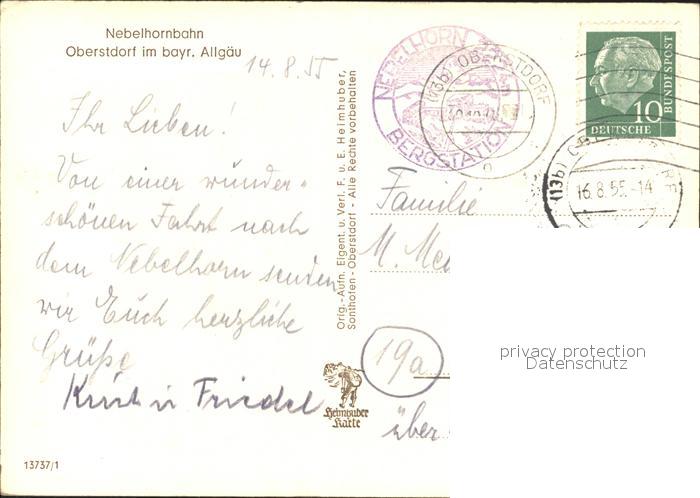 Nebelhornbahn
Oberstdorf im bayr. Allgäu
14.8.55
Ihr Lieben!
Von einer wunder-
schönen Fahrt nach
dem Nebelhorn senden
wir Euch herzliche
Grüße
Kurt u Friedel
13737/1
Orig.-Aufn. Eigent. u. Verl. F. u. E. Heimhuber,
Sonthofen - Oberstdorf - Alle Rechte vorbehalten
Heimhuber
Karte
NEBELHORN
BERGSTATION
(13b) OBERSTDORF
10
DEUTSCHE
BUNDESPOST
(13b)
16.8.55.-14
Familie
M. Me
19a
über
privacy protection
Datenschutz